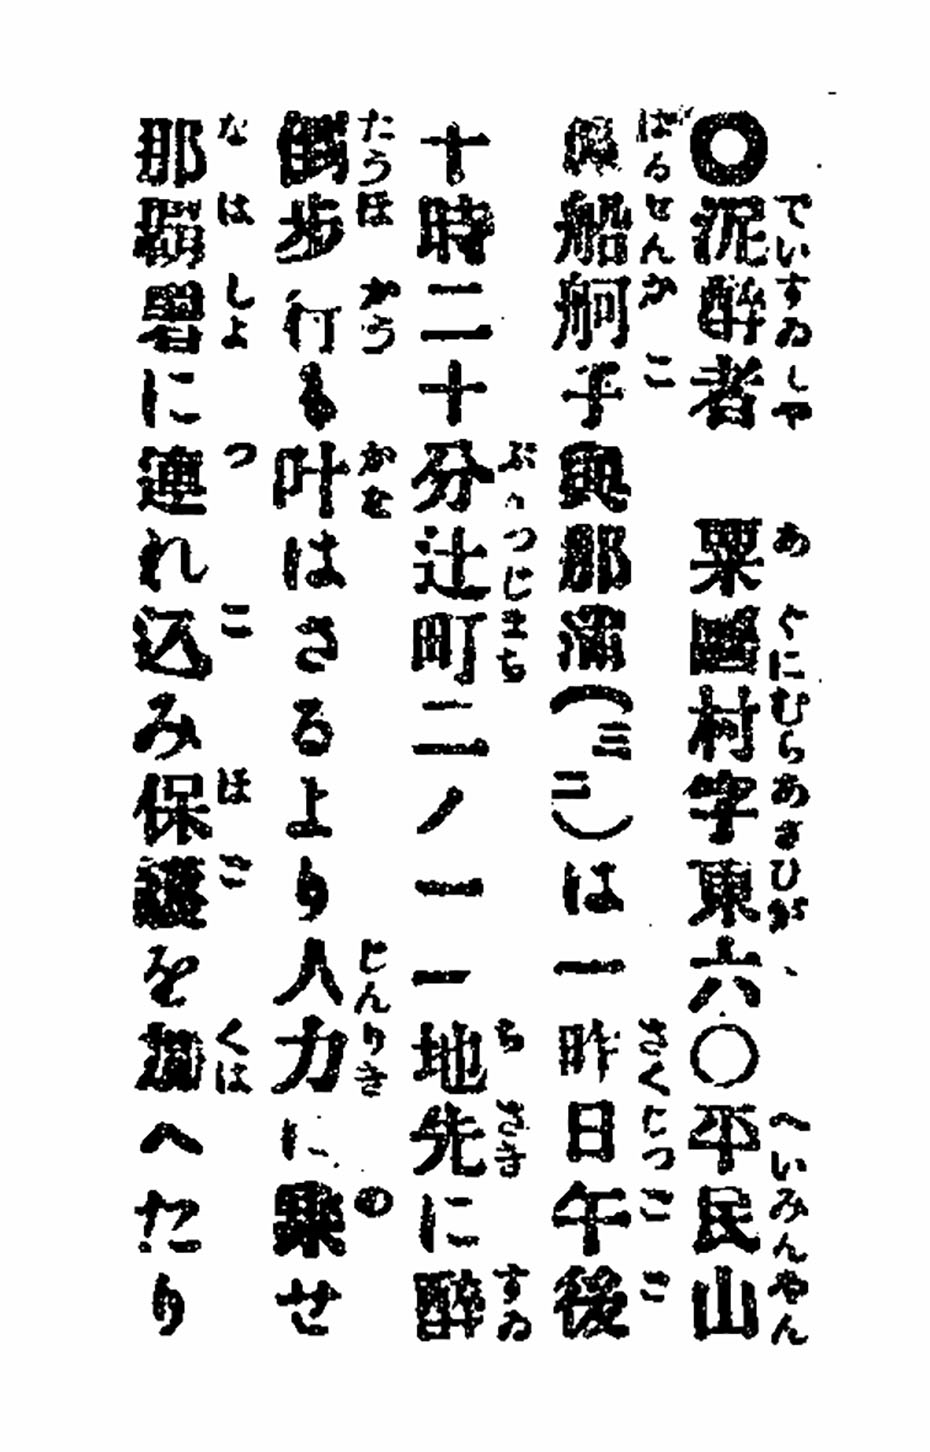 〇泥醉者　粟國村字東六〇平民山
原船舸子與那蒲(三二)は一昨日午後
十時二十分辻町二ノ一一地先に醉
倒歩行も叶はさるより人力に乘せ
那覇署に連れ込み保護を加へたり